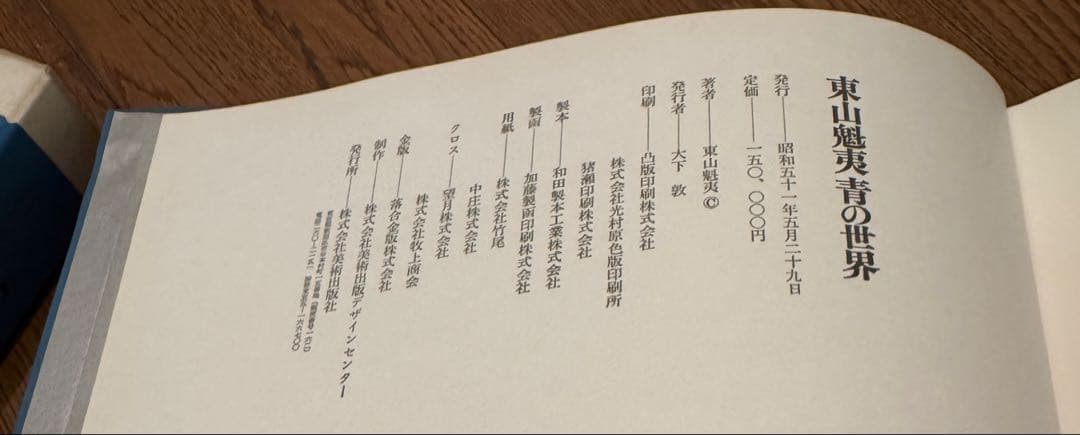 東山魁夷 青の世界
発行――昭和五十一年五月二十九日
定価――一五〇、〇〇〇円
著者――東山魁夷©
発行者――大下 敦
印刷――凸版印刷株式会社
株式会社光村原色版印刷所
猪瀬印刷株式会社
製本――和田製本工業株式会社
製函――加藤製函印刷株式会社
用紙――株式会社竹尾
中庄株式会社
クロス――望月株式会社
株式会社牧上商会
金版――落合金版株式会社
制作――株式会社美術出版デザインセンター
発行所――株式会社美術出版社